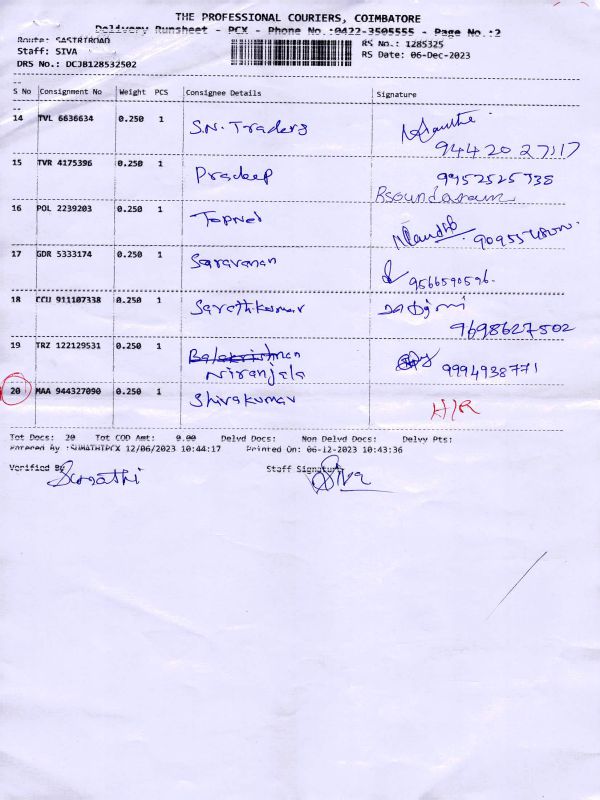 THE PROFESSIONAL COURIERS, COIMBATORE
Delivery Runsheet - PCX - Phone No.:0422-3505555 - Page No.:2
Route: SASTRIROAD RS No.: 1285325
Staff: SIVA RS Date: 06-Dec-2023
DRS No.: DCJB128532502
S No Consignment No Weight PCS Consignee Details Signature
14 TVL 6636634 0.250 1 S.N. Traders 94420 27117
15 TVR 4175396 0.250 1 Pradeep 9952525738
Rsoundararm
16 POL 2239203 0.250 1
17 GDR 5333174 0.250 1 Saravanan 9566590596.
18 CCU 911107338 0.250 1 Sarathkumar
9698627502
19 TRZ 122129531 0.250 1 Balakrishnan
Niranjala 9994938771
20 MAA 944327090 0.250 1 Shivakumar H/R
Tot Docs: 20 Tot COD Amt: 0.00 Delvd Docs: Non Delvd Docs: Delvy Pts:
Entered By :SUMATHIPCX 12/06/2023 10:44:17 Printed On: 06-12-2023 10:43:36
Verified By Sumathi Staff Signature Siva